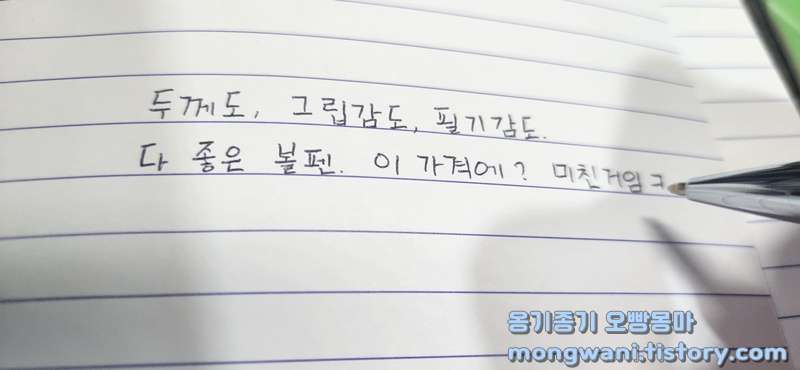 두께도, 그립감도, 필기감도.
다 좋은 볼펜. 이 가격에? 미친거임 ㅋ
옹기종기 오빵몽마
mongwani.tistory.com